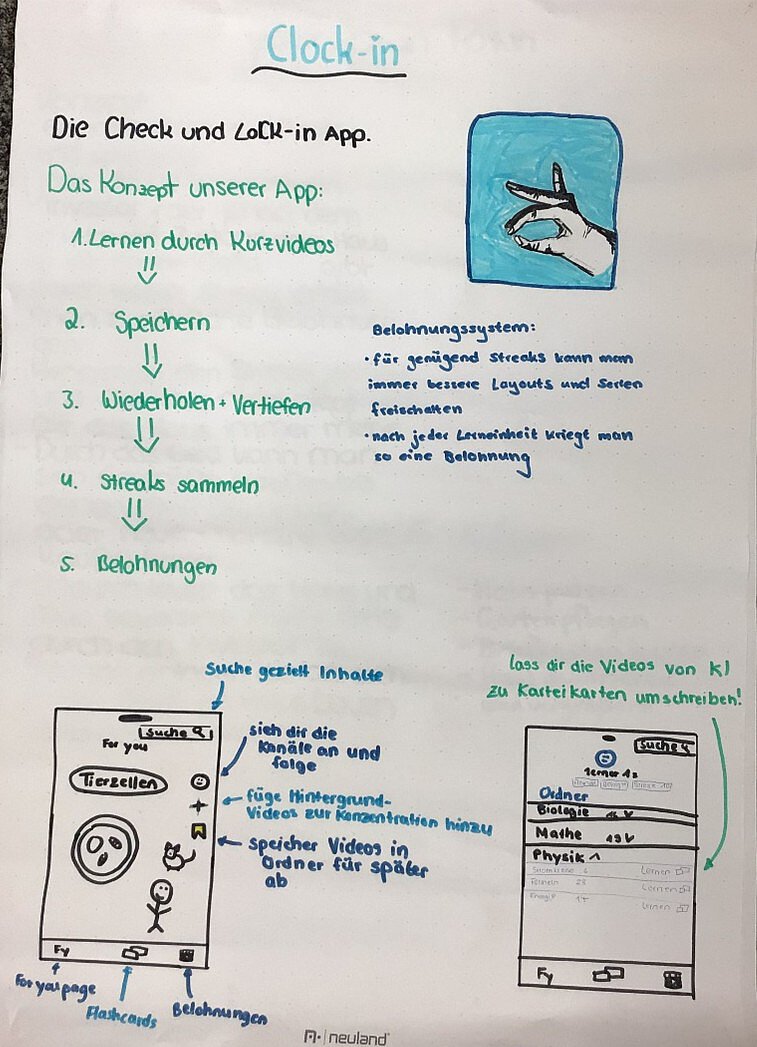 Clock-in
Die Check und Lock-in App.
Das Konzept unserer App:
1. Lernen durch Kurzvideos
2. Speichern
3. Wiederholen + Vertiefen
4. Streaks sammeln
5. Belohnungen
Belohnungssystem:
• für genügend Streaks kann man
immer bessere Layouts und Serien
freischalten
• nach jeder Lerneinheit kriegt man
so eine Belohnung
Suche gezielt Inhalte
suche
For you
Tierzellen
sieh dir die
Kanäle an und
folge
füge Hintergrund-
Videos zur Konzentration hinzu
speicher Videos in
Ordner für später
ab
Fy
For youpage
Flashcards
Belohnungen
lass dir die Videos von KI
zu Karteikarten umschreiben!
suche
lerner 12
Ordner
Biologie
Mathe 19
Physik
Lernen
Formeln 23 Lernen
Energie 17
Lernen
Fy
neuland